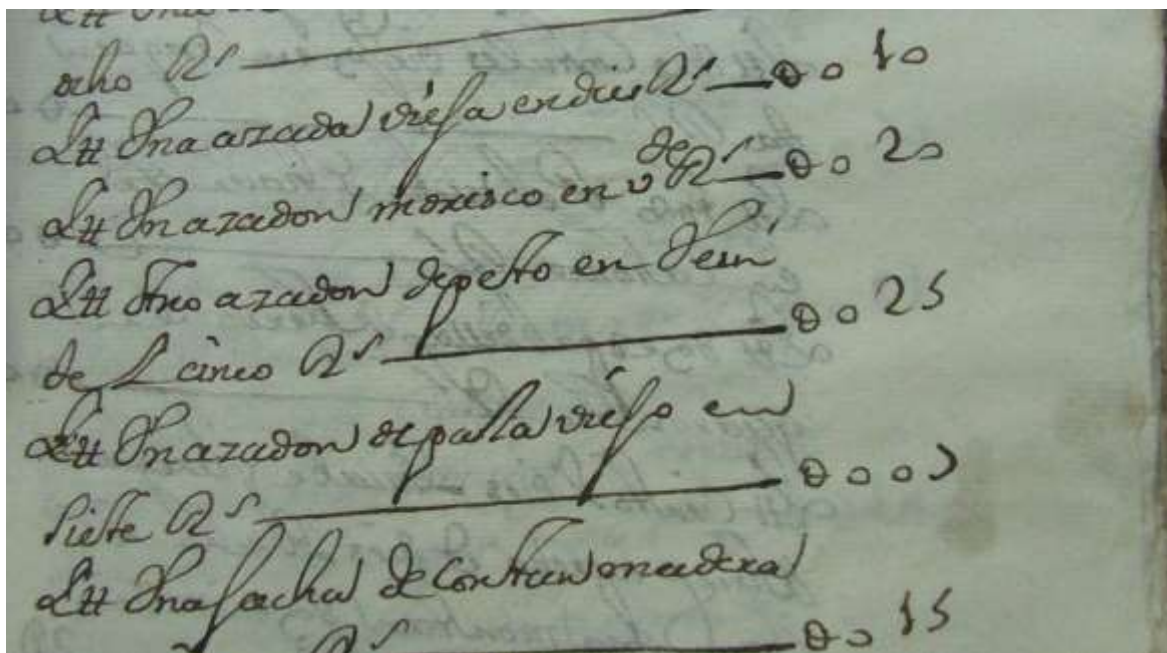 ocho Rs
Ytt Una azada viefa en diez Rs — 0 0 10
Ytt Un azadon morisco en v de Rs — 0 0 20
Ytt otro azadon de peto en Vein
te y cinco Rs — 0 0 25
Ytt Un azadon de pala viefo en
siete Rs — 0 0 0 7
Ytt Una facha de Cortar madera
Rs — 0 0 15